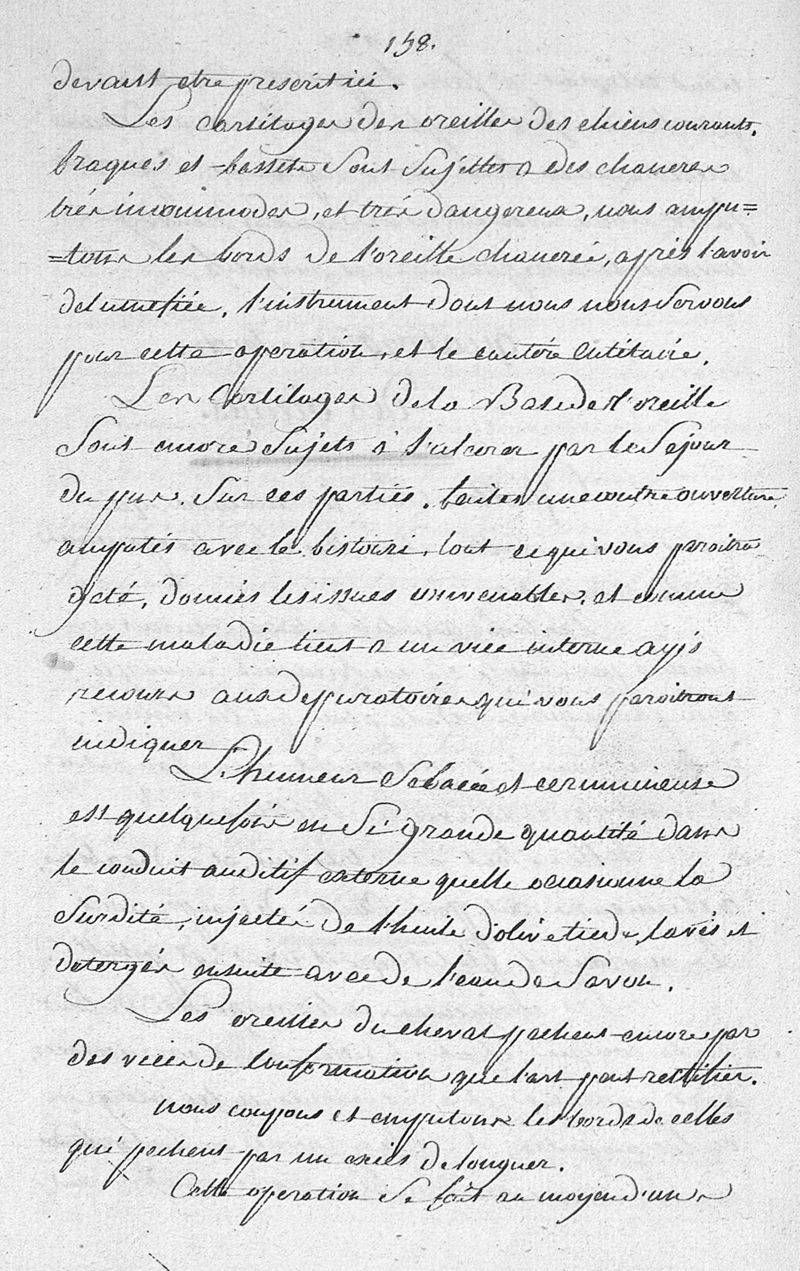 158.
devant etre prescrit ici.
Les cartilages des oreilles des chiens courants,
braques et bassets sont sujettes a des chancres
très incommodes, et très dangereux, nous ampu=
=tons les bords de l'oreille chancrée, après l'avoir
detumefiée, l'instrument dont nous nous servons
pour cette operation, est le cautère cutélaire.
Les Cartilages de la Base de l'oreille
sont encore sujets à s'ulcerer par le Sejour
du pus. Sur ces parties, faites une contre ouverture
amputés avec le bistouri, tout ce qui vous paroitra
gaté, donnés les issues convenables, et comme
cette maladie tient a un vice interne ayis
recours aux depuratoires qui vous paroitront
indiquer
L'humeur Sebacée et cerumineuse
est quelquefois en Si grande quantité dans
le conduit auditif externe quelle ocasionne la
Surdité, injectés de l'huile d'olive tiede, lavés et
detergés ensuite avec de l'eau de Savon.
Les oreilles du cheval pechent encore par
des vices de Conformation que l'art peut rectifier.
nous coupons et amputons les bords de celles
qui pechent par un excès de longuer.
Cette operation se fait au moyen d'une